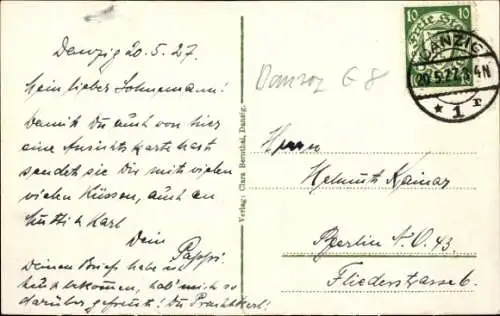 Danzig 20.5.27.
Mein lieber Sohnemann!
Damit Du auch von hier
eine Ansichtskarte hast
sendet sie Dir mit vielen
vielen Küssen, auch an
Karl
Dein Pappi
Deinen Brief habe ich
bekommen, hab' mich so
darüber gefreut! Du Prachtkerl!
Verlag: Clara Bernthal, Danzig.
10 10
Freie Stadt
DANZIG
20.5.27. 4N
* 1 r
Danzig G 8
Herrn
Helmut Kainar
Berlin N.O. 43.
Fliederstrasse 6.